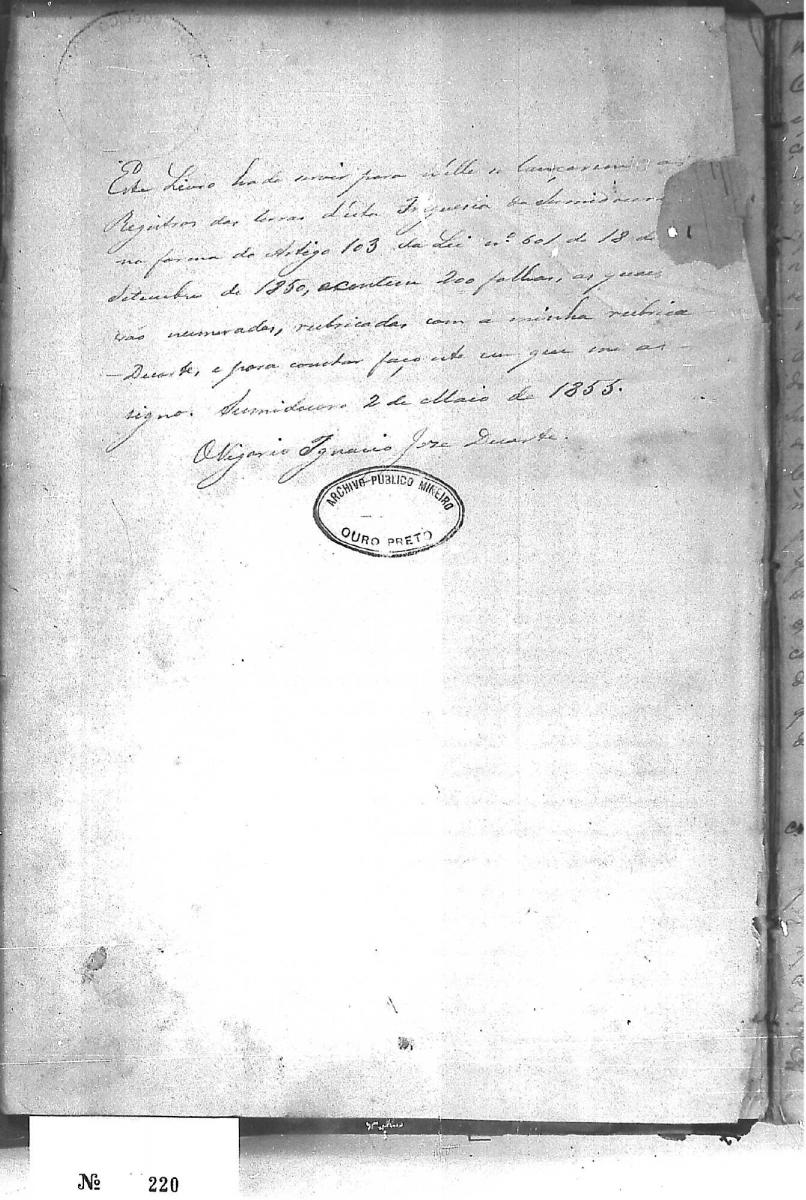 Este Livro hade servir para nélle se lançarem os
Registros das terras d'esta Freguesia do Sumidouro
na forma do Artigo 103 da Lei nº 601 de 18 de
Setembro de 1850, e contem 200 folhas, as quaes
vão numeradas, rubricadas com a minha rubrica
- Duarte, e para constar faço este em que me as-
signo. Sumidouro 2 de Maio de 1855.
O Vigario Ignacio Jose Duarte.
ARCHIVO PUBLICO MINEIRO
OURO PRETO
Nº 220